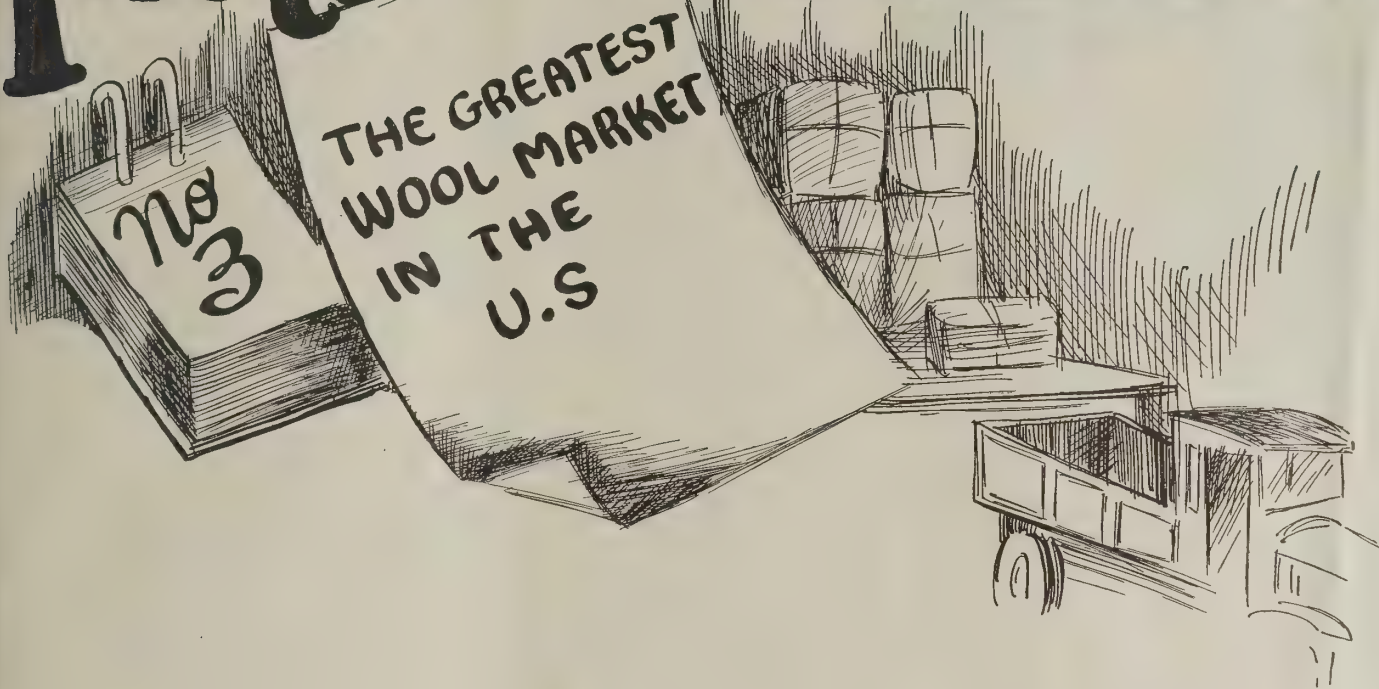 THE GREATEST
WOOL MARKET
IN THE
U.S
No
3